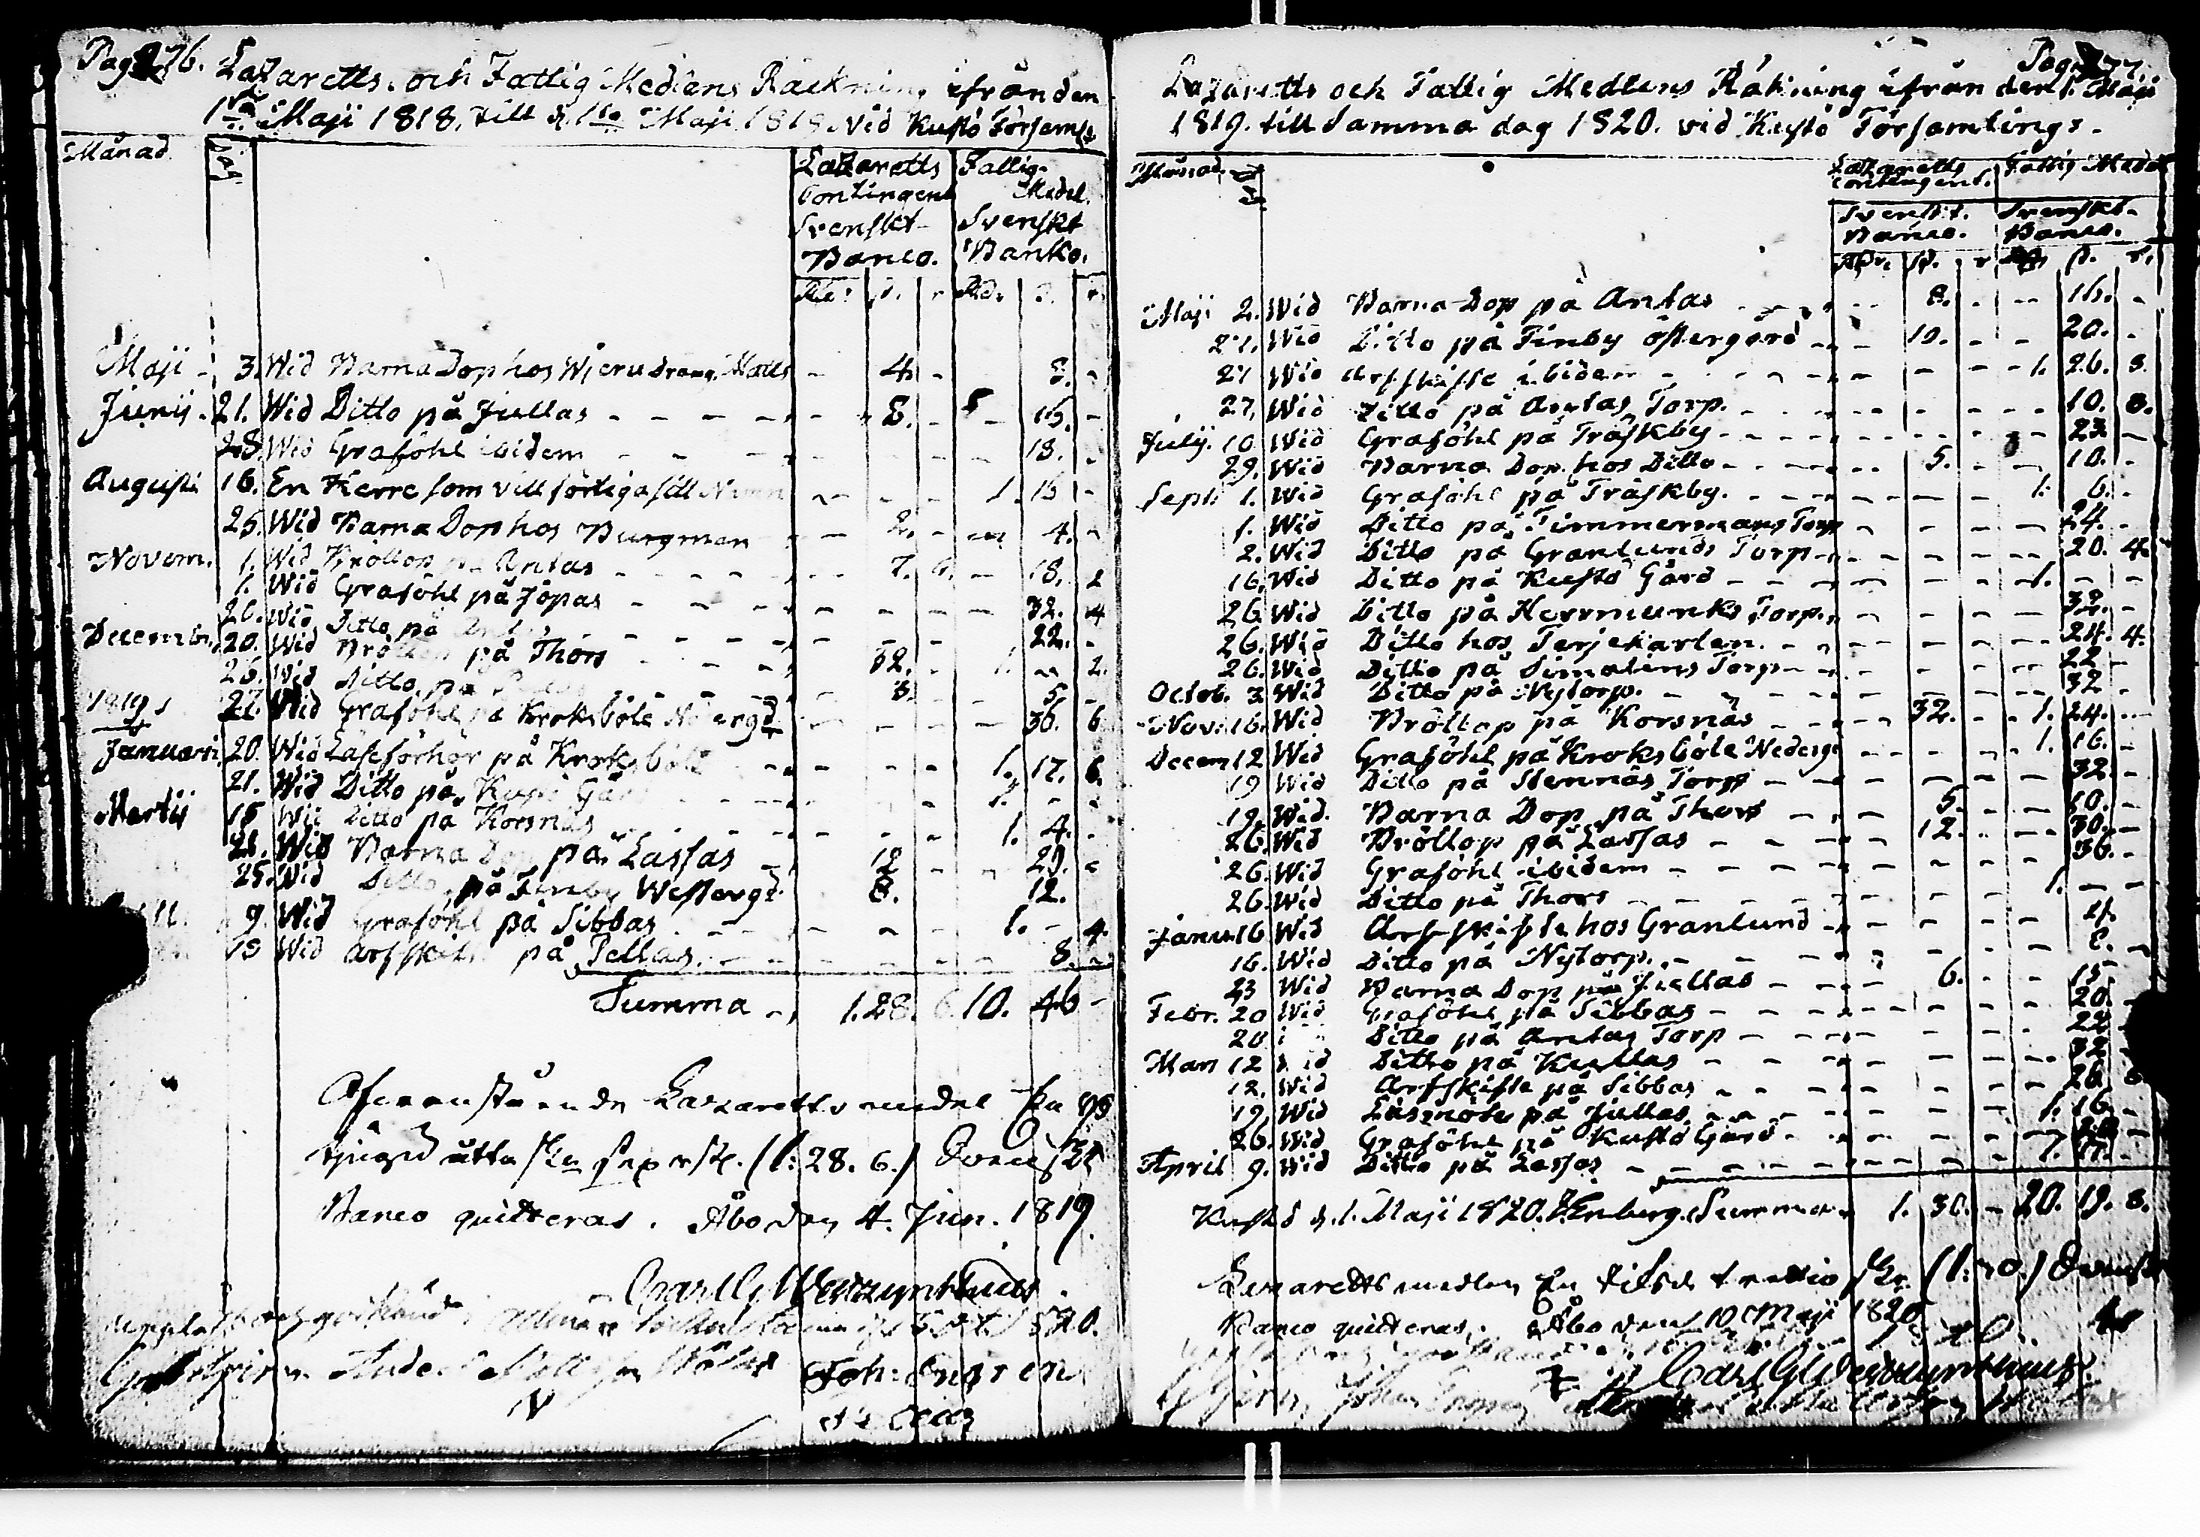 Pag. 276.
Lazaretts och Fattig Medlens Räckning ifrån den
1sta Maji 1818. till d. 1sta Maji 1819. vid Kustö Församl:
Månad Dag Lazaretts Contingent Svenskt Banco. Fattig Medel. Svenskt Banko.
Rd: s. r. Rd. s. r.
Maji 3. Wid Barna Dop hos Wjeru dräng Matts - 4. - - 8. -
Junij 21. Wid Ditto på Jullas - 8. - 16. -
28. Wid Graföhl ibidem - - - - 18. -
Augusti 16. En Herre som vill förtiga sitt Namn - - - 1. 16 -
25. Wid Barna Dop hos Burgman - 2. - - 4. -
Novem. 1. Wid Bröllop på Antas - 7. 6. - 18. 2
1. Wid Graföhl på Jopas - - - - 32. 4
26. Wid Ditto på - - - - 22. -
Decembr. 20. Wid Bröllop på Thors - 32. - 1. - 2.
26. Wid Ditto på - 3. - - 5. -
1819
27. Wid Graföhl på Kroksböle Nedergd - - - - 36. 6
Januarii 20. Wid Läseförhör på Kroksböle - - - 1. 17. 6.
21. Wid Ditto på Kustö Gård - - - 1. - -
Martij 15 Wid Ditto på Korsnäs - - - 1. 4. -
21. Wid Barna Dop på Lassas - 12 - - 29. -
25. Wid Ditto på Finby Westergd. 8. 12.
9. Wid Graföhl på Sibbas - - - 1. - 4.
13 Wid Arfskifte på Pellas - - - - 8. -
Summa - 1. 28. 6. 10. 46 -
Ofvanstående Lazaretts medel En Rd
tjugu åtta sk. sex rst. (1: 28. 6.) Svenskt
Banco quitteras. Åbo den 4. Jun. 1819.
Carl G Weszynthius
1820.
Joh: Engren
Pag. 277.
Lazaretts och Fattig Medlens Räkning ifrån den 1. Maji
1819. till Samma dag 1820. vid Kustö Församlings.
Månad. Lazaretts Contingent. Fattig Medel
Svenskt. Banco. Svenskt. Banco.
Rdr. s. r s. r.
Maji 2. Wid Barna Dop på Antas - 8. - - 16. -
27. Wid Ditto på Finby Östergård - 10. - - 20. -
27 Wid Arfskifte ibidem - - - 1. 26. 8.
27. Wid Ditto på Antas Torp. - - - - 10. 8.
July. 10 Wid Graföhl på Träskby - - - - 23 -
29. Wid Barna Dop hos Ditto - 5. - - 10. -
Sept: 1. Wid Graföhl på Träskby. - - - 1. 6. -
1. Wid Ditto på Timmermans Torp - - - - 24. -
2. Wid Ditto på Granlunds Torp - - - - 20. 4.
16. Wid Ditto på Kustö Gård - - - 1. - -
26 Wid Ditto på Herrmunks Torp. - - - - 32. -
26. Wid Ditto hos Terjekarlen. - - - - 24. 4.
26. Wid Ditto på Simolins Torp - - - - 22 -
Octob. 3. Wid Ditto på Nytorp. - - - - 32 -
Nov: 16. Wid Bröllop på Korsnäs - 32. - 1. 24. -
Decem 12 Wid Graföhl på Kroksböle Nedergd - - - 1. 16. -
19 Wid Ditto på Stennäs Torp - - - - 32. -
19. Wid. Barna Dop på Thors - 5. - - 10. -
26. Wid Bröllop på Lassas - 12. - - 30. -
26. Wid Graföhl ibidem - - - - 36. -
26. Wid Ditto på Thors - - - 1. - -
Janu: 16 Wid Arfskifte hos Granlund - - - - 4.
16. Wid Ditto på Nytorp. - - - - 8. -
23 Wid Barna Dop på Jullas - 6. - - 15 -
Febr. 20 Wid Graföhl på Sibbas - - - - 20. -
20 Ditto på Antas Torp - - - - 22 -
Mart 12 Wid Ditto på Kullas - - - - 32 -
12. Wid Arfskifte på Sibbas - - - - 26.
19. Wid Läsmöte på Jullas - - - 1. 16. -
26. Wid Graföhl på Kustö Gård - - - -
April 9. Wid Ditto på Lassas - - - 1. 17. -
Kustö d. 1. Maji 1820. Enberg. Summa 1. 30. - 20. 19. 8.
Lazaretts medlen En Riksd trettio sk. (1: 30.) Svenskt
Banco quitteras. Åbo den 10 Maji 1820.
Carl G Weszynthius.